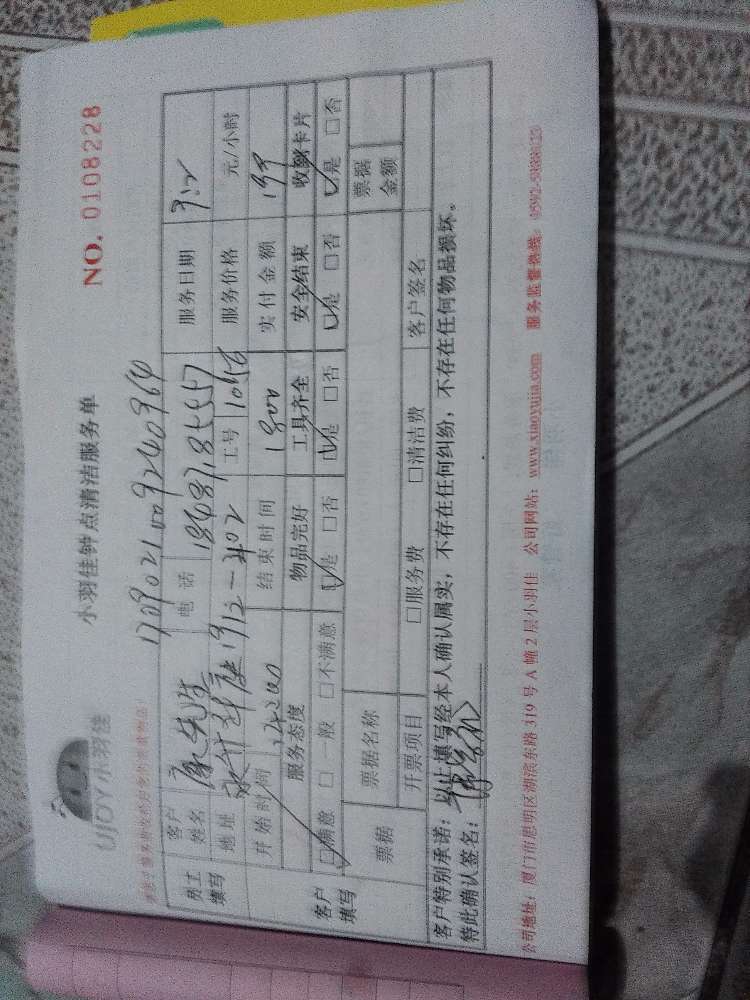 UJOY小羽佳
小羽佳钟点清洁服务单
NO. 0108228
1709021009240964
员工填写
客户姓名 康先生 电话 服务日期 9.2
地址 工号 1056 服务价格 元/小时
开始时间 结束时间 1800 实付金额 199
客户填写
服务态度 物品完好 工具齐全 安全结束 收到卡片
☑满意 □一般 □不满意 ☑是 □否 ☑是 □否 ☑是 □否 ☑是 □否
票据 票据名称 票据金额
开票项目 □服务费 □清洁费 客户签名
客户特别承诺：以上填写经本人确认属实，不存在任何纠纷，不存在任何物品损坏。
特此确认签名：
公司地址：厦门市思明区湖滨东路 319 号 A 幢 2 层小羽佳 公司网站：www.xiaoyujia.com 服务监督热线：